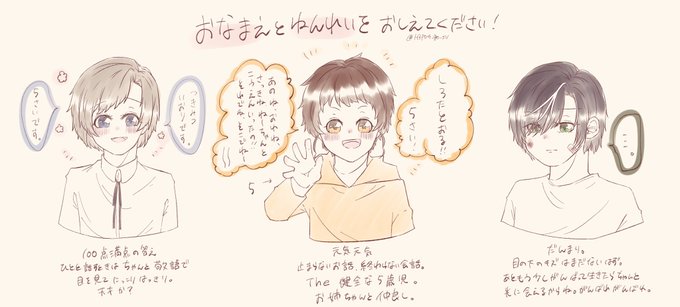 おなまえとねんれいを おしえてください！
つきみつ
いおりです。
5さいです。
しろだとおる!!
5さい!!
あのね、おれね、
さっきねねーちゃんと
こうえんいったの!!
それでね、とこでね!
5→
・・・。
100点満点の答え
ひとと話すときはちゃんと敬語で
目を見てにっこりはっきり。
天才か？
元気元気
止まらないお話、終わらない会話。
The 健全な5歳児。
お姉ちゃんと仲良し。
だんまり。
目の下のキズはまだないはず。
あともう少しがんばって生きてたらちゃんと
光に会えるからね。がんばれがんばれ。